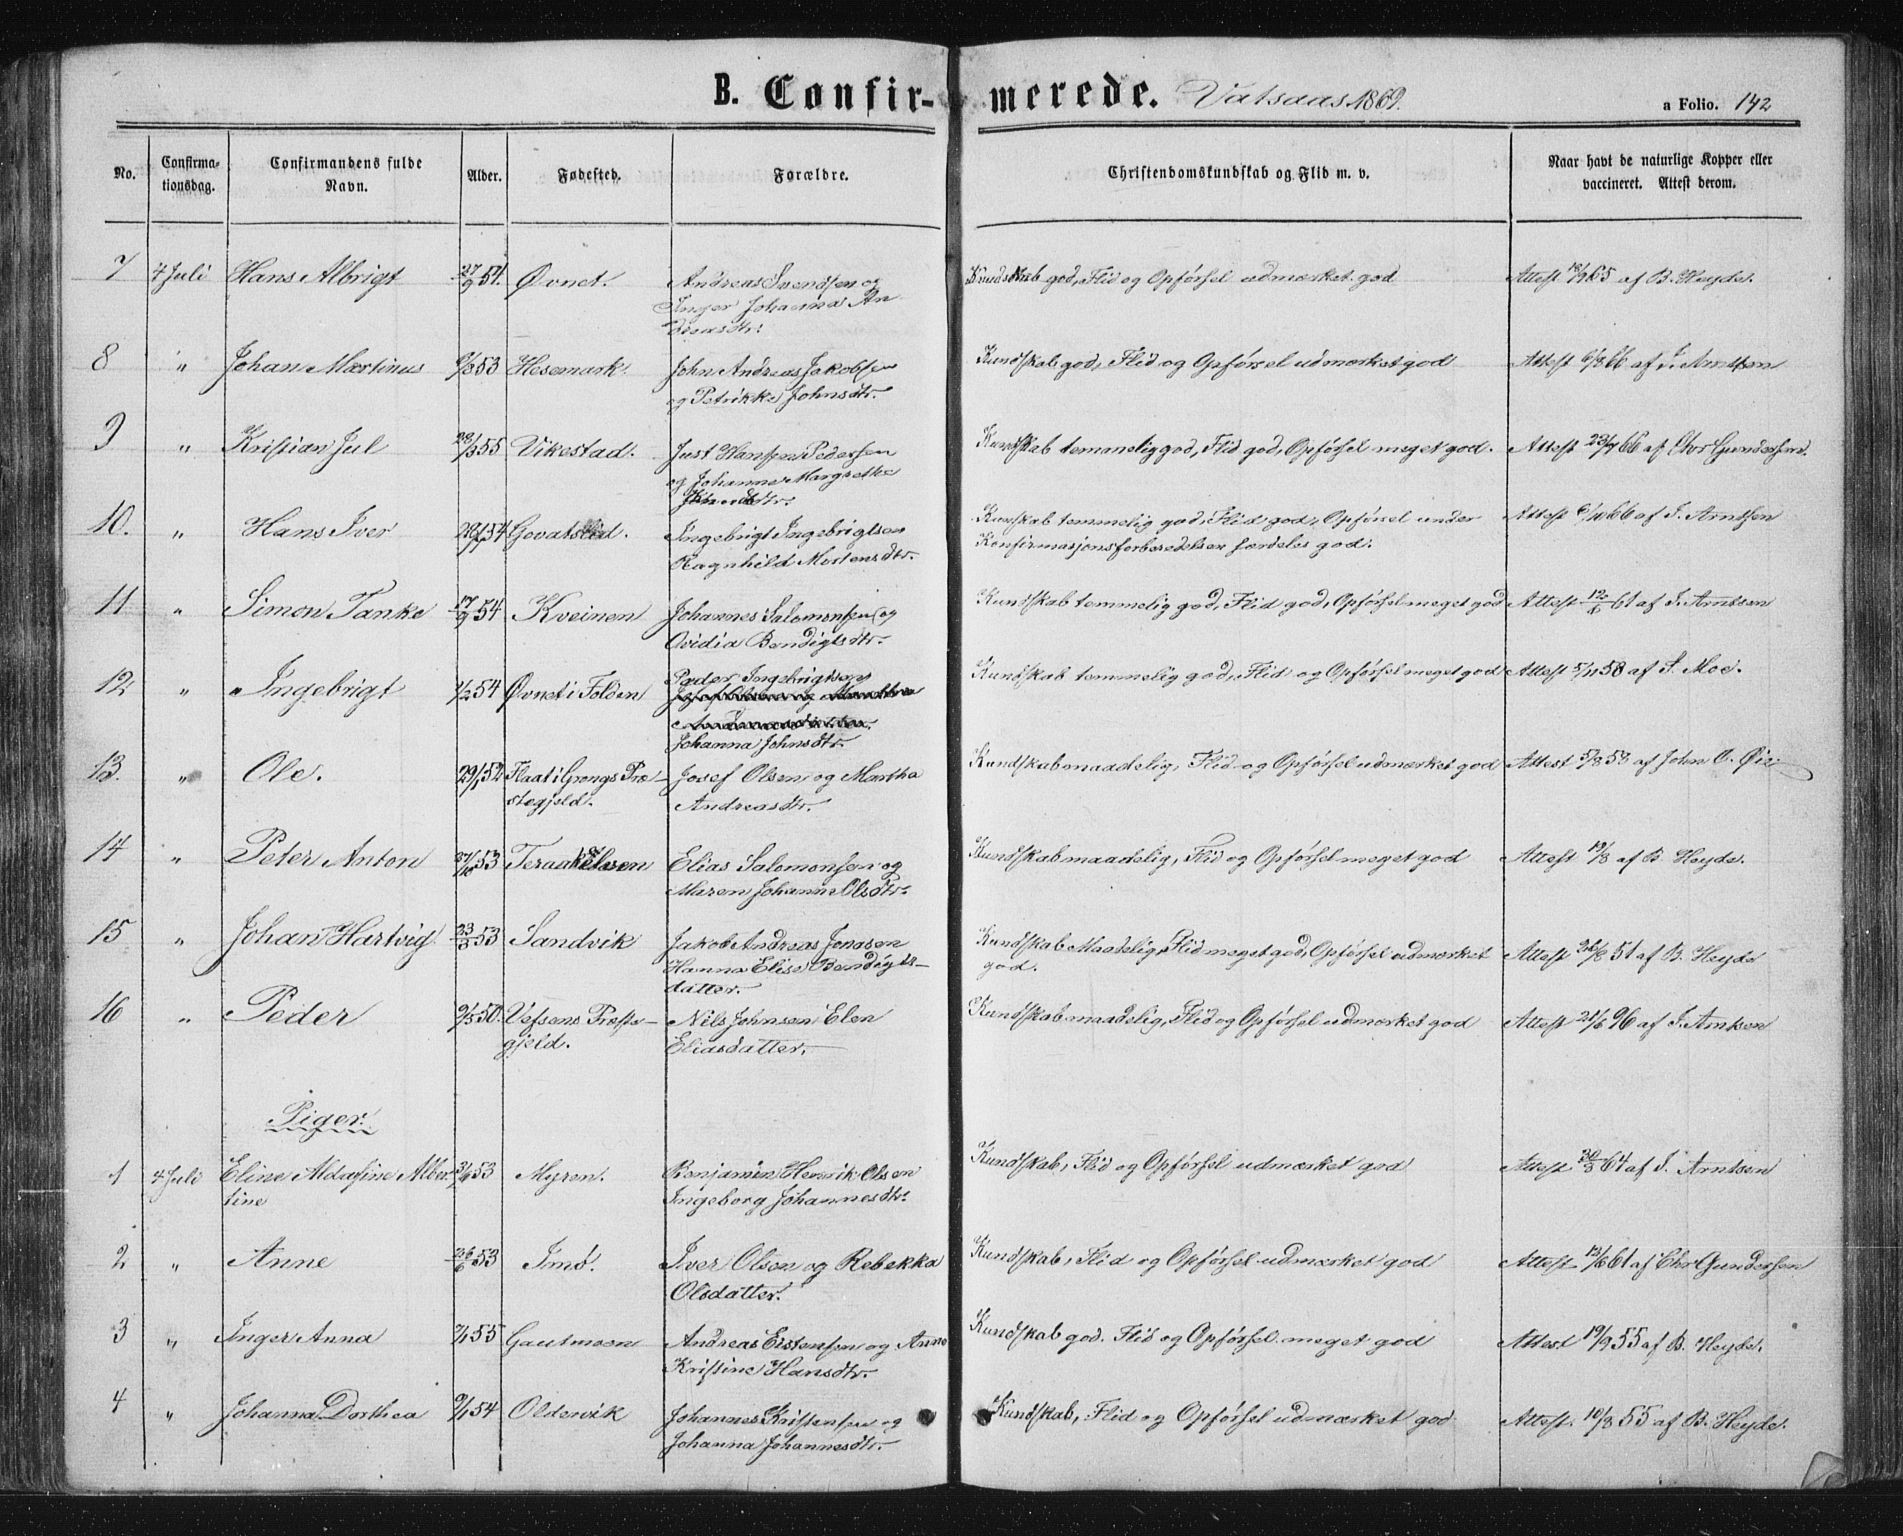 B. Confir- merede. Vatsaas 1869. a Folio. 142
No. Confirma-tionsdag. Confirmandens fulde Navn. Alder. Fødested. Forældre. Christendomskundskab og Flid m. v. Naar havt de naturlige Kopper eller vaccineret. Attest derom.
7 4 Juli Hans Albrigt 27/9 54. Øvnet. Andreas Svendsen og Kundskab god, Flid og Opførsel udmærket god Attest 18/9 65 af B. Heyde.
Inger Johanna An
dreasdtr.
8 " Johan Martinus 9/3 53 Hesemark. John Andreas Jakobsen Kundskab god, Flid og Opførsel udmærket god Attest 6/8 66 af J. Arntsen
og Petrikke Johnsdtr.
9 " Kristian Jul 28/3 55 Vikestad. Just Hansen Pedersen Kundskab temmelig god, Flid god, Opførsel meget god. Attest 23/7 66 af Chr Gundersen.
og Johanne Margrethe
dtr.
10. " Hans Iver 54 Govatslid. Ingebrigt Ingebrigtsen Kundskab temmelig god, Flid god, Opførsel under Attest 66 af J. Arntsen
Ragnhild Mortensdtr. Konfirmasjonsforberedelsen særdeles god.
11 " Simon Tanke 17/9 54 Kveinen Johannes Salomonsen og Kundskab temmelig god, Flid god, Opførsel meget god Attest 61 af J. Arntsen
Ovidia Bendigtsdtr.
12 " Ingebrigt 1/2 54 Øvnet i Folden Peder Ingebrigtsen Kundskab temmelig god, Flid og Opførsel meget god Attest 5/11 58 af S. Moe.
Josef Olsen og Martha
Andreasdatter.
Johanna Johnsdtr.
13. " Ole. 29/1 52 Flaat i Grongs Præ- Josef Olsen og Martha Kundskab maadelig, Flid og Opførsel udmærket god Attest 5/8 53 af John O. Øie
stegjeld. Andreasdtr.
14 " Peter Anton 27/10 53 Elias Salomonsen og Kundskab maadelig, Flid og Opførsel meget god Attest 19/8 af B. Heyde.
Maren Johanna Olsdtr.
15 " Johan Hartvig 23/3 53 Sandvik Jakob Andreas Jonasen Kundskab Maadelig, Flid meget god, Opførsel udmærket Attest 26/8 51 af B. Heyde
Hanna Elise Bendigts- god.
datter.
16 " Peder 9/3 50. Vefsens Præste- Nils Johnsen Elen Kundskab maadelig, Flid og Opførsel udmærket god Attest 21/6 96 af J. Arntsen
gjeld. Eliasdatter.
Piger.
1 4 Juli Eline Aldasine Alber 53 Myren. Benjamin Henrik Olsen Kundskab, Flid og Opførsel udmærket god Attest 64 af J. Arntsen
tine Ingeborg Johannesdtr.
2 " Anne 26/6 53 Imo. Iver Olsen og Rebekka Kundskab, Flid og Opførsel udmærket god Attest 13/8 61 af Chr Gundersen
Olsdatter.
3 " Inger Anna 7/1 55 Gautmoen Andreas Eistensen og Anne Kundskab god. Flid og Opførsel meget god Attest 19/9 55 af B. Heyde.
Kristine Hansdtr.
4 " Johanna Dorthea 9/1 54 Oldervik Johannes Kristensen og Kundskab, Flid og Opførsel udmærket god Attest. 10/8 55 af B. Heyde.
Johanna Johannesdtr.